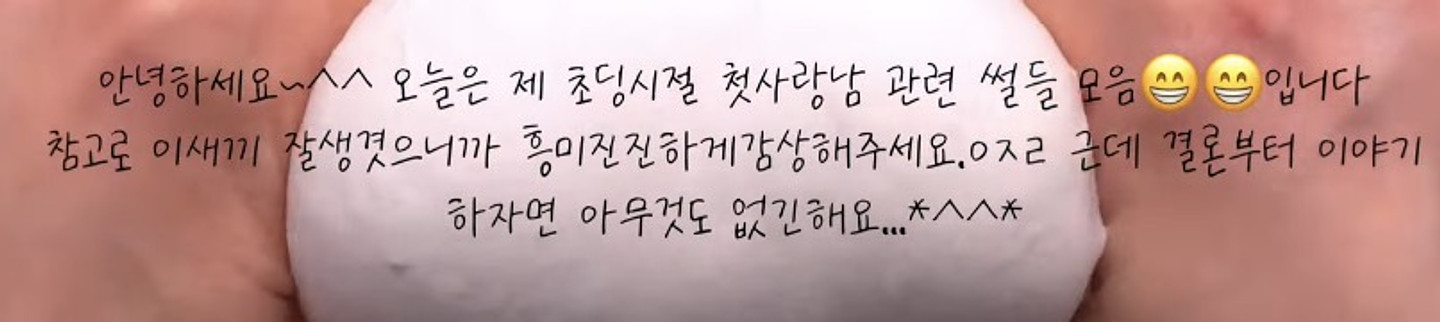 안녕하세요~^^ 오늘은 제 초딩시절 첫사랑남 관련 썰들 모음😁😁입니다
참고로 이새끼 잘생겼으니까 흥미진진하게감상해주세요.ㅇㅈㄹ 근데 결론부터 이야기
하자면 아무것도 없긴해요...*^^*